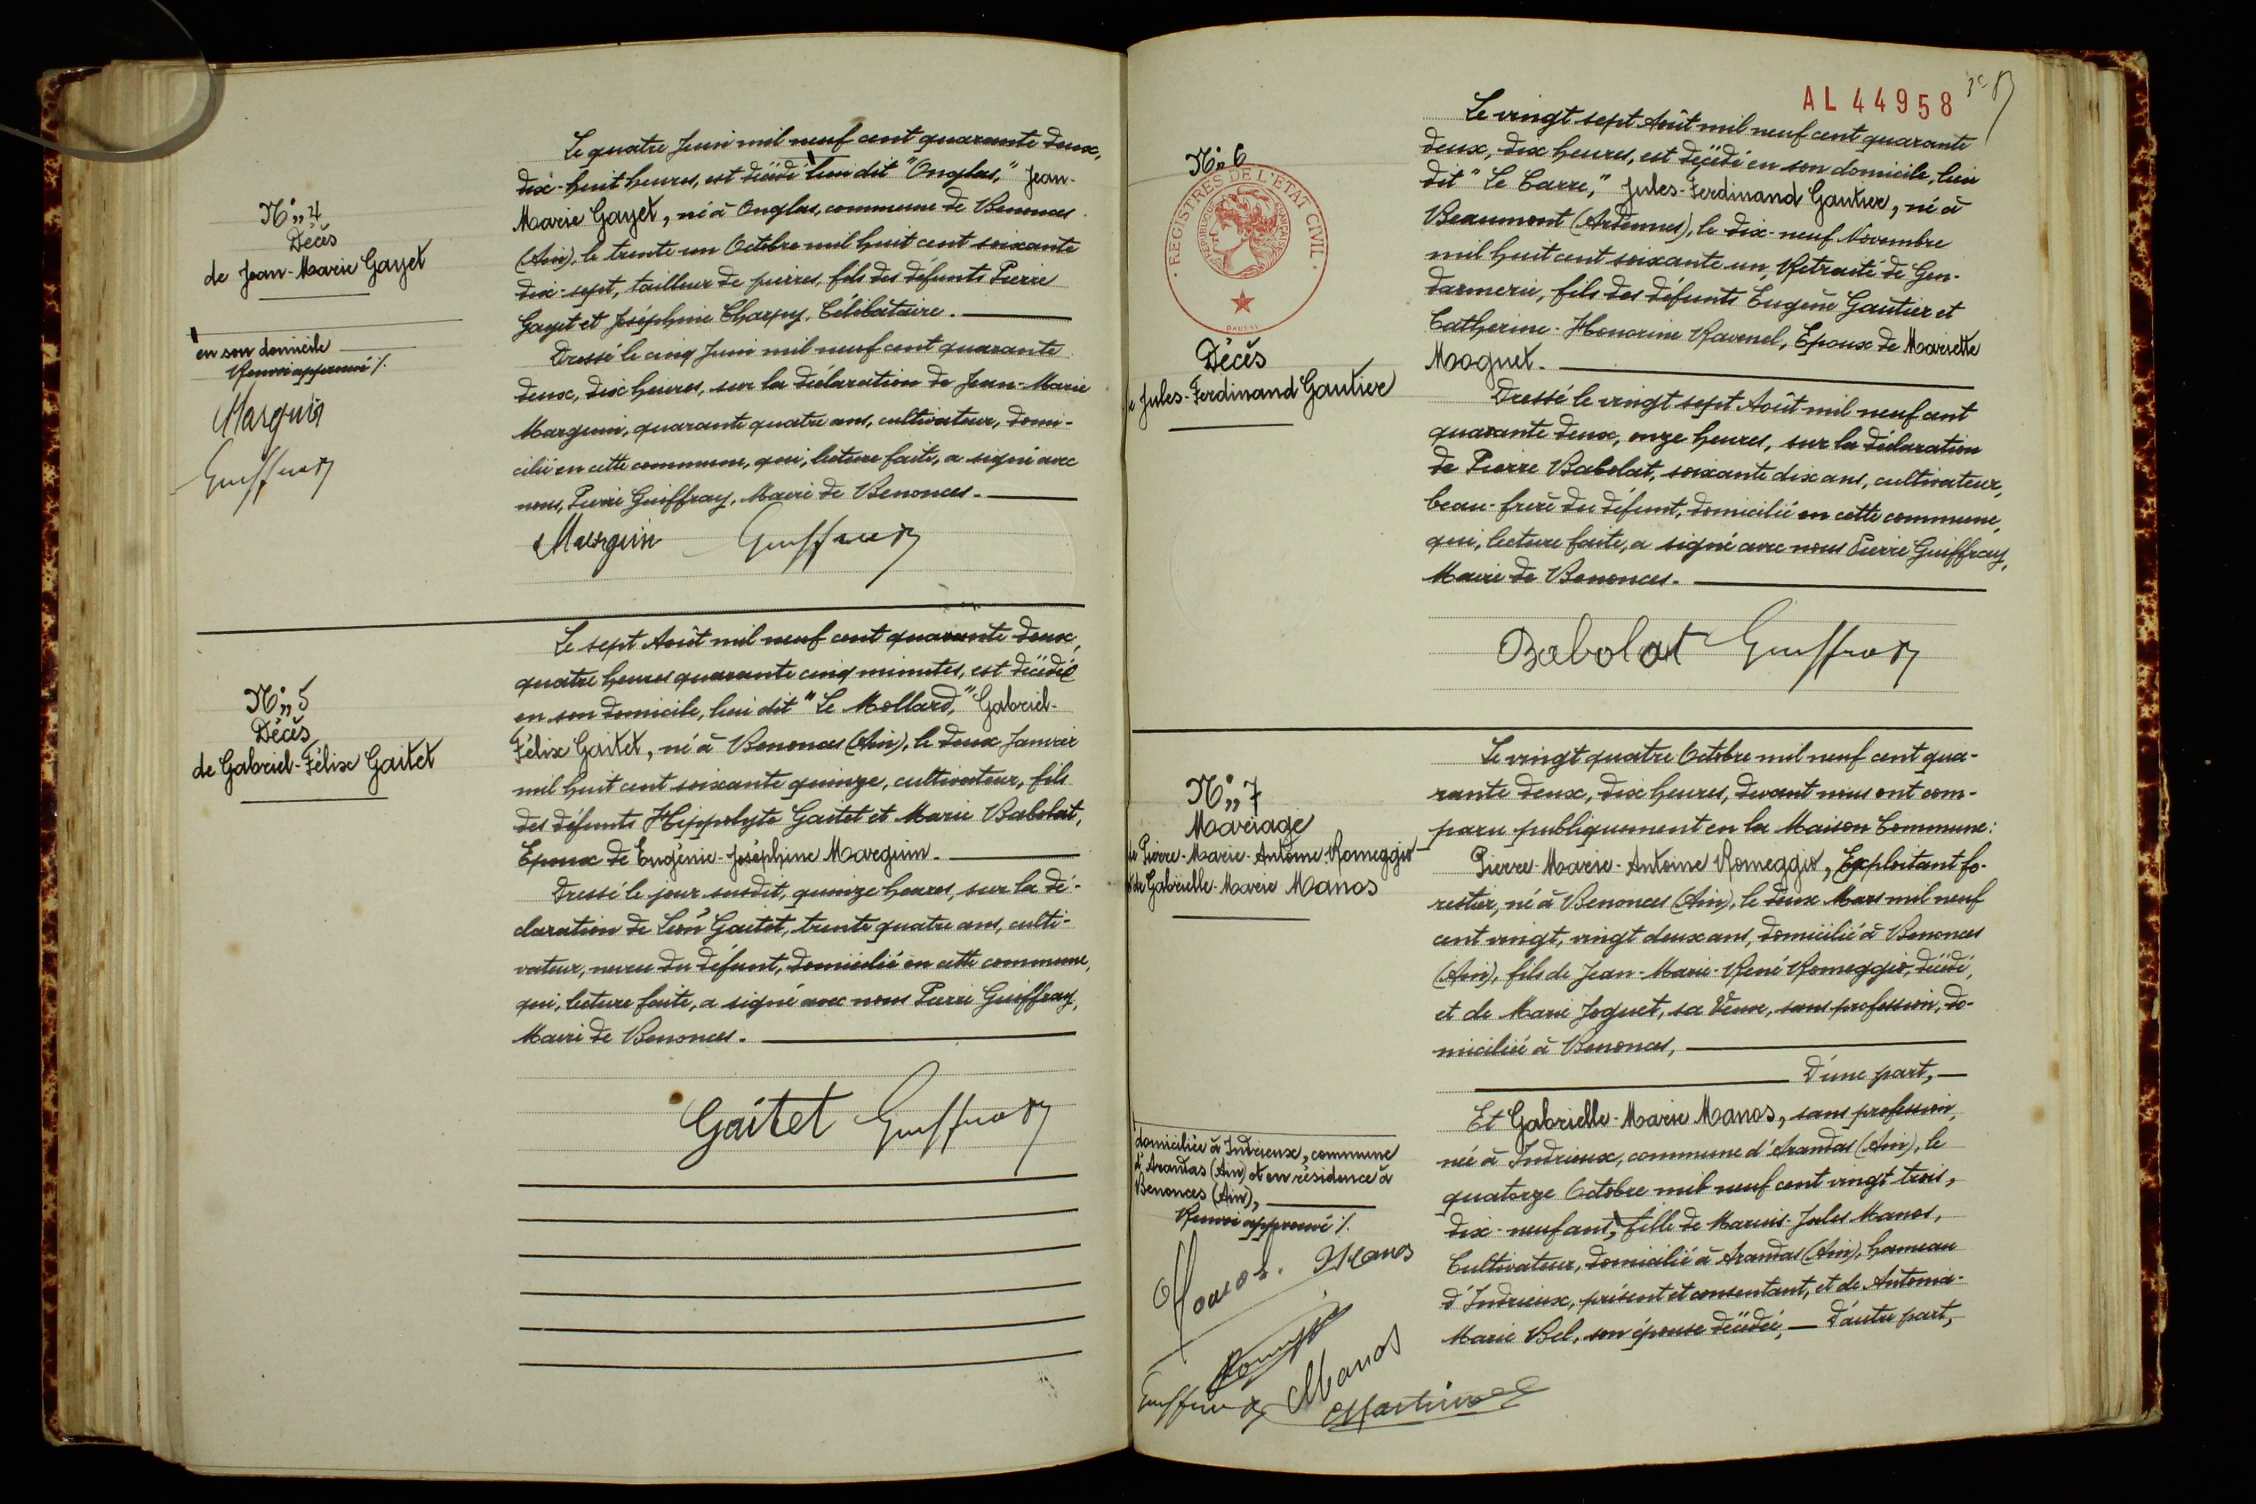 N° 4
Décès
de Jean-Marie Gayet
en son domicile
Renvoi approuvé ./.
Marguin
Guiffray
Le quatre Juin mil neuf cent quarante deux,
dix-huit heures, est décédé lieu dit "Onglas," Jean-
Marie Gayet, né à Onglas, commune de Benonces
(Ain), le trente un Octobre mil huit cent soixante
dix-sept, tailleur de pierres, fils des défunts Pierre
Gayet et Joséphine Charpy, Célibataire.
Dressé le cinq Juin mil neuf cent quarante
deux, dix heures, sur la déclaration de Jean-Marie
Marguin, quarante quatre ans, cultivateur, domi-
cilié en cette commune, qui, lecture faite, a signé avec
nous, Pierre Guiffray, Maire de Benonces.
Marguin Guiffray
N° 5
Décès
de Gabriel-Félix Gaitet
Le sept Août mil neuf cent quarante deux,
quatre heures quarante cinq minutes, est décédé
en son domicile, lieu dit "Le Mollard," Gabriel-
Félix Gaitet, né à Benonces (Ain), le deux Janvier
mil huit cent soixante quinze, cultivateur, fils
des défunts Hippolyte Gaitet et Marie Babolat,
Epoux de Eugénie-Joséphine Marguin.
Dressé le jour susdit, quinze heures, sur la dé-
claration de Léon Gaitet, trente quatre ans, culti-
vateur, neveu du défunt, domicilié en cette commune,
qui, lecture faite, a signé avec nous Pierre Guiffray,
Maire de Benonces.
Gaitet Guiffray
AL 44958
N° 6
REGISTRES DE L'ETAT CIVIL
REPUBLIQUE FRANÇAISE
Décès
Jules-Ferdinand Gautier
Le vingt sept Août mil neuf cent quarante
deux, dix heures, est décédé en son domicile, lieu
dit "Le Carre," Jules-Ferdinand Gautier, né à
Beaumont (Ardennes), le dix-neuf Novembre
mil huit cent soixante un, Retraité de Gen-
darmerie, fils des défunts Eugène Gautier et
Catherine-Honorine Ravenel, Epoux de Mariette
Moguet.
Dressé le vingt sept Août mil neuf cent
quarante deux, onze heures, sur la déclaration
de Pierre Babolat, soixante dix ans, cultivateur,
beau-frère du défunt, domicilié en cette commune,
qui, lecture faite, a signé avec nous Pierre Guiffray,
Maire de Benonces.
Babolat Guiffray
N° 7
Mariage
de Pierre-Marie-Antoine Romeggio
& de Gabrielle-Marie Manos
Le vingt quatre Octobre mil neuf cent qua-
rante deux, dix heures, devant nous ont com-
paru publiquement en la Maison Commune:
Pierre-Marie-Antoine Romeggio, Exploitant fo-
restier, né à Benonces (Ain), le deux Mars mil neuf
cent vingt, vingt deux ans, domicilié à Benonces
(Ain), fils de Jean-Marie-René Romeggio, décédé,
et de Marie Joguet, sa Veuve, sans profession, do-
miciliée à Benonces,
D'une part,
Et Gabrielle-Marie Manos, sans profession,
née à Indrieux, commune d'Arandas (Ain), le
quatorze Octobre mil neuf cent vingt trois,
dix-neuf ans, fille de Marius-Jules Manos,
Cultivateur, domicilié à Arandas (Ain), hameau
d'Indrieux, présent et consentant, et de Antonia-
Marie Bel, son épouse décédée, D'autre part,
domiciliée à Indrieux, commune
d'Arandas (Ain) et en résidence à
Benonces (Ain),
Renvoi approuvé ./.
Manos
Guiffray Manos